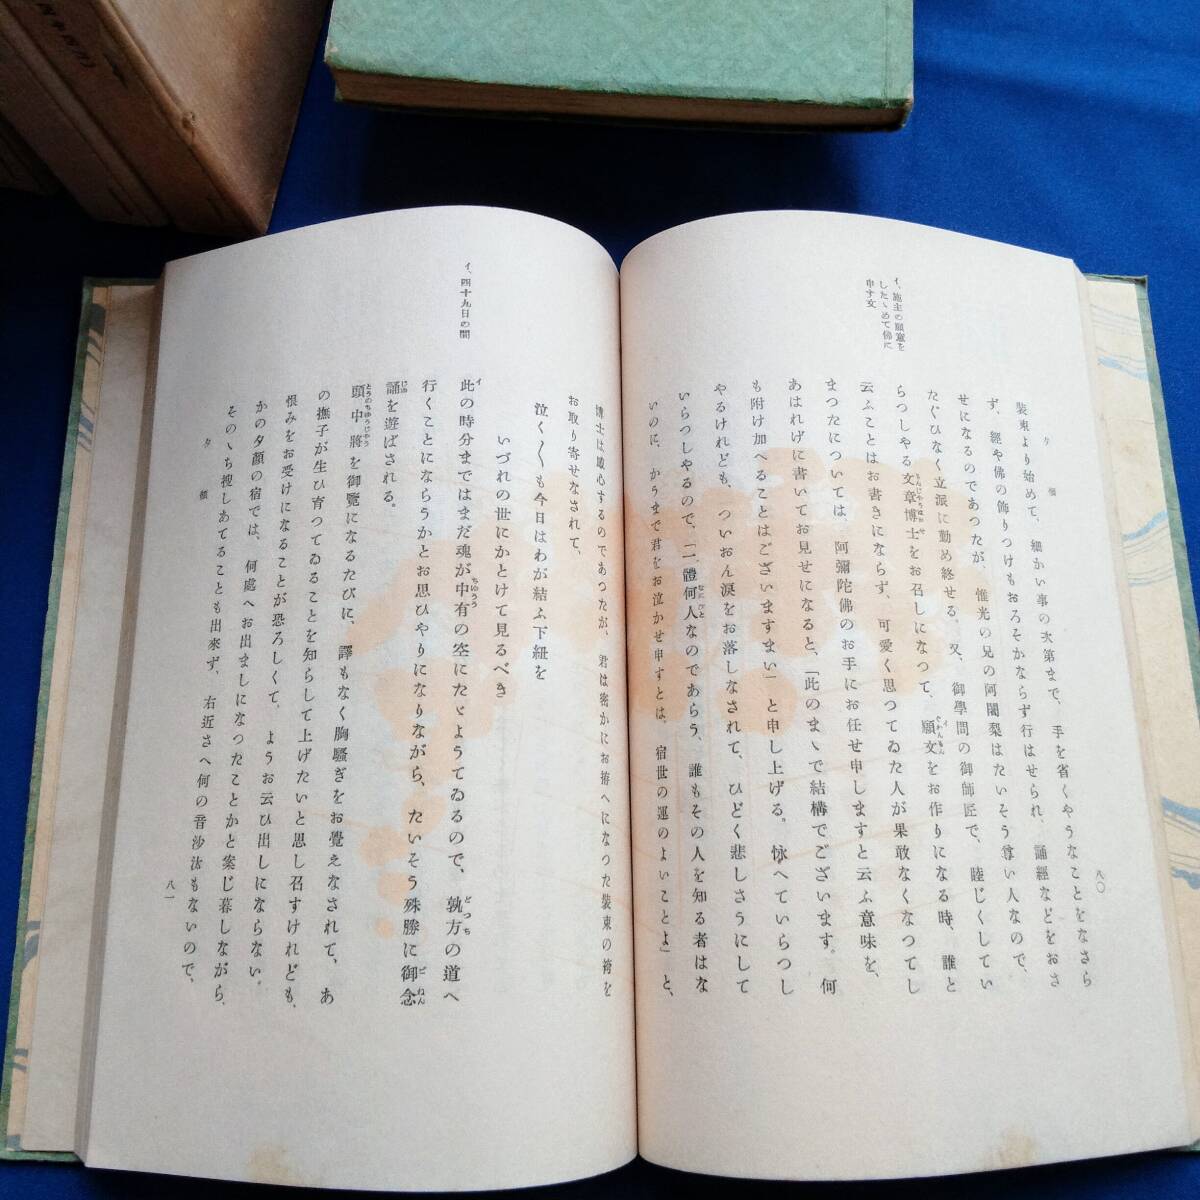 イ、施主の願意を
したゝめて佛に
申す文
夕顔
八〇
裝束より始めて、細かい事の次第まで、手を省くやうなことをなさら
ず、經や佛の飾りつけもおろそかならず行はせられ、誦經などをおさ
せになるのであつたが、惟光の兄の阿闍梨はたいそう尊い人なので、
たぐひなく立派に勤め終せる。又、御學問の御師匠で、睦じくしてい
らつしやる文章博士をお召しになつて、願文をお作りになる時、誰と
云ふことはお書きにならず、可愛く思つてゐた人が果敢なくなつてし
まつたについては、阿彌陀佛のお手にお任せ申しますと云ふ意味を、
あはれげに書いてお見せになると、「此のまゝで結構でございます。何
も附け加へることはございますまい」と申し上げる。怺へていらつし
やるけれども、ついおん淚をお落しなされて、ひどく悲しさうにして
いらつしやるので、「一體何人なのであらう、誰もその人を知る者はな
いのに、かうまで君をお泣かせ申すとは、宿世の運のよいことよ」と、
イ、四十九日の間
博士は敢心するのであつたが、君は密かにお拵へになつた裝束の袴を
お取り寄せなされて、
泣く〱も今日はわが結ふ下紐を
いづれの世にかとけて見るべき
此の時分まではまだ魂が中有の空にたゞようてゐるので、孰方の道へ
行くことにならうかとお思ひやりになりながら、たいそう殊勝に御念
誦を遊ばされる。
頭中將を御覽になるたびに、譯もなく胸騷ぎをお覺えなされて、あ
の撫子が生ひ育つてゐることを知らして上げたいと思し召すけれども、
恨みをお受けになることが恐ろしくて、ようお云ひ出しにならない。
かの夕顏の宿では、何處へお出ましになつたことかと案じ暮しながら、
そのゝち捜しあてることも出來ず、右近さへ何の音沙汰もないので、
夕顔
八一